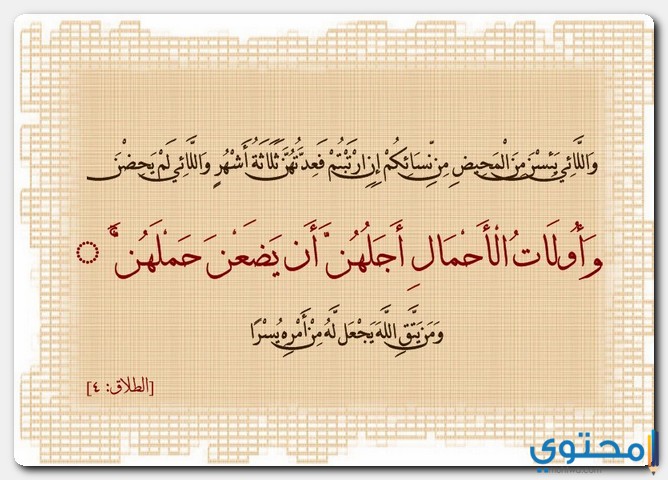 وَاللَّائِي يَئِسْنَ مِنَ الْمَحِيضِ مِن نِّسَائِكُمْ إِنِ ارْتَبْتُمْ فَعِدَّتُهُنَّ ثَلَاثَةُ أَشْهُرٍ وَاللَّائِي لَمْ يَحِضْنَ
وَأُولَاتُ الْأَحْمَالِ أَجَلُهُنَّ أَن يَضَعْنَ حَمْلَهُنَّ ۚ
وَمَن يَتَّقِ اللَّهَ يَجْعَل لَّهُ مِنْ أَمْرِهِ يُسْرًا
[الطلاق: ٤]
محتوى